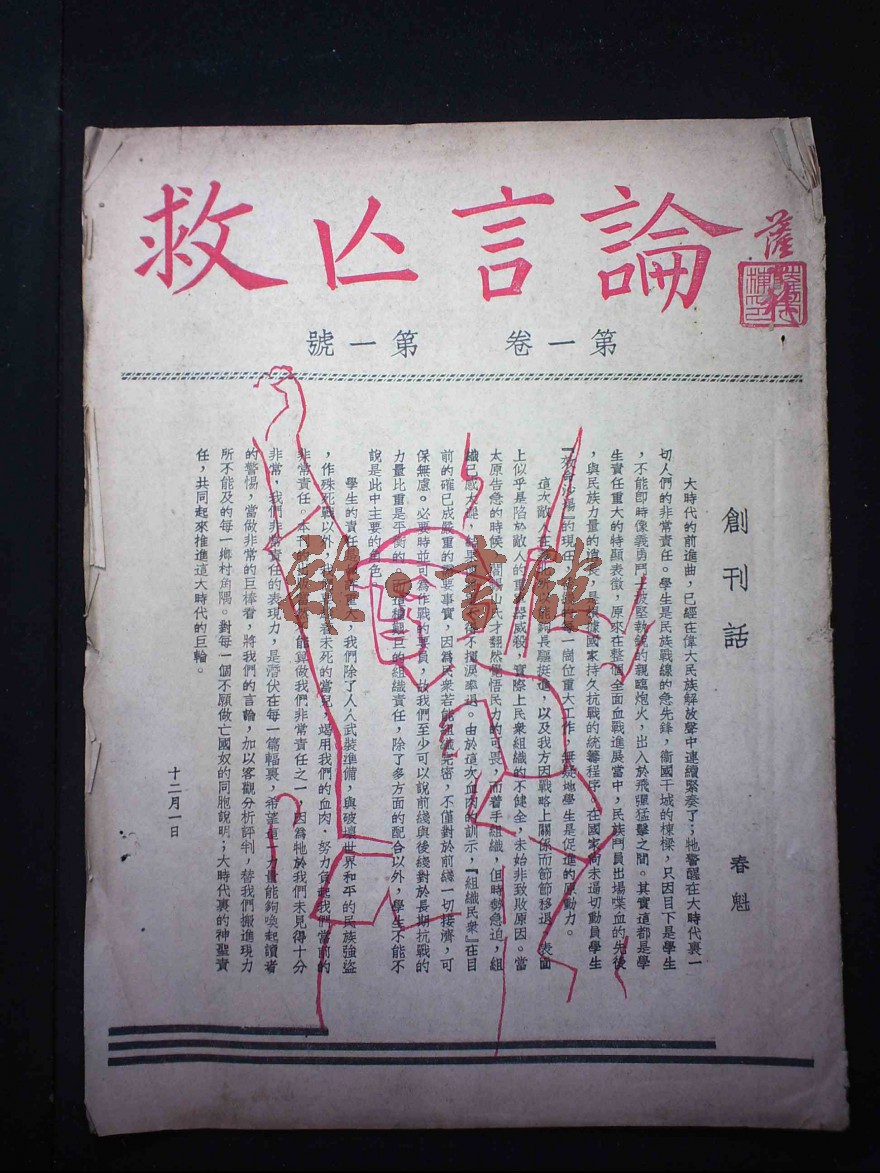 救亡言論
薩
第一卷 第一號
創刊話
春魁
大時代的前進曲，已經在偉大民族解放聲中連續緊奏了；牠警醒在大時代裏一
切人們的非常責任。學生是民族戰線的急先鋒，衞國干城的棟樑，只因目下是學生
，不能即時像義勇鬥士被堅執銳的親臨炮火，出入於飛彈猛擊之間。其實這都是學
生責任重大的特顯表徵，原來在整個全面血戰進展當中，民族鬥員出場喋血的先後
，與民族力量的進展，是須據國家持久抗戰的統籌程序。在國家尚未逼切動員學生
『效命沙場』的現在，崗位重大工作，無疑地學生是促進的原動力。
這次敵人在長驅挺進，以及我方因戰略上關係而節節移退，表面
上似乎是陷於敵人的重兵器威殺，實際上民衆組織的不健全，未始非致敗原因。當
太原告急的時候，閻氏才翻然醒悟民力的可畏，而着手組織，但時勢急迫，組
織已感太遲，揮淚率退。由於這次血肉的訓示，『組織民衆』在目
前的確已成嚴重的主要事實，因為民衆若能組織完密，不僅對於前綫一切接濟，可
保無慮。必要時並可為作戰的要員，故我們至少可以說前綫與後綫對於長期抗戰的
力量比重是平衡的。而這種艱巨的組織責任，除了多方面的配合以外，學生不能不
說是此中主要的角色。
學生的責任重，我們除了人人武裝準備，與破壞世界和平的民族強盜
，作殊死戰以外，未死的當兒，竭用我們的血肉，努力負起我們當前的
非常責任。本刊能算做我們非常責任之一，因為牠於我們未見得十分
非常，我們非常責任的表現力，是潛伏在每一篇幅裏，希望這一力量能夠喚起讀者
的警惕，當做非常的巨棒看，將我們的言論，加以客觀分析評判，替我們搬進現力
所不能及的每一鄉村角隅。對每一個不願做亡國奴的同胞說明；大時代裏的神聖責
任，共同起來推進這大時代的巨輪。
十二月一日
雜·書館